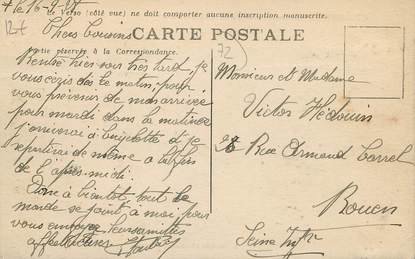 le 16-9-
Le Verso (côté vue) ne doit comporter aucune inscription manuscrite.
Chers Cousins
CARTE POSTALE
Partie réservée à la Correspondance.
72
Rentré hier soir très tard, je
vous écris de ce matin, pour
vous prévenir de mon arrivée
pour mardi dans la matinée
j'arriverai à bicyclette et je
repartirai de même à la fin
de l'après-midi.
Donc à bientôt, tout le
monde se joint à moi pour
vous envoyer nos amitiés
affectueuses
Monsieur et Madame
Victor Hédouin
28 Rue Armand Carrel
Rouen
Seine Infre